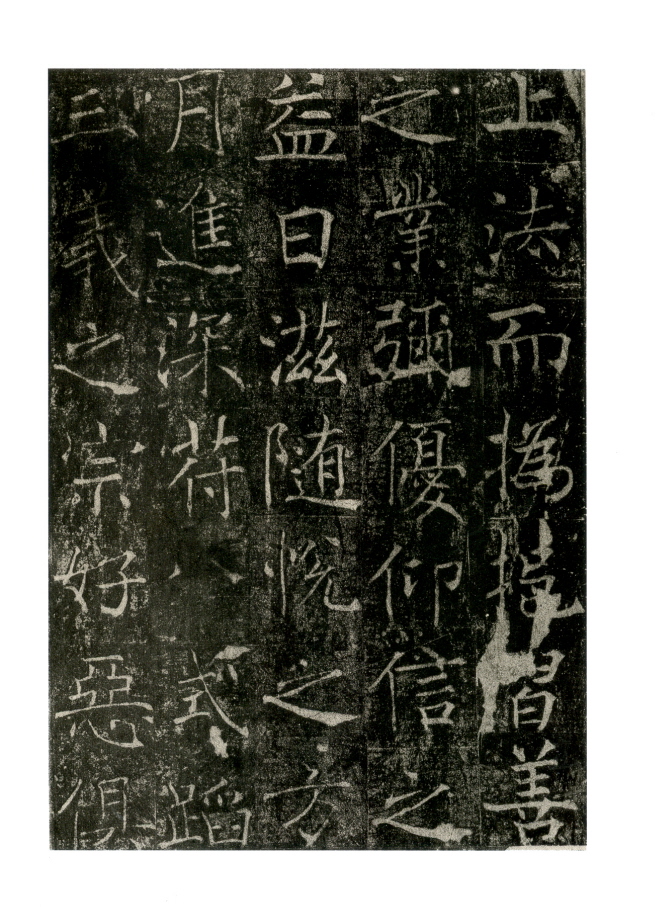 上法而撝挹習善
之業彌優仰信之
益日滋随悦之方
月進深符八式蹈
三義之宗好惡俱